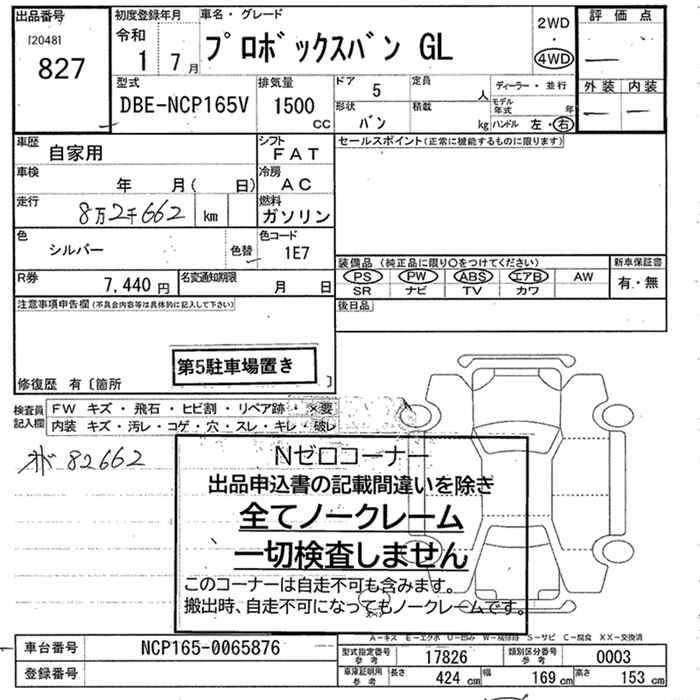 出品番号 初度登録年月 車名・グレード 2WD 評価点
[2048] 827 令和 1 7月 プロボックスバン GL ・ 4WD ―
型式 排気量 ドア 5 定員 人 ディーラー・並行 外装 内装
DBE-NCP165V 1500 CC 形状 バン 積載 kg モデル年式 年 ― ―
ハンドル 左・右
車歴 自家用 シフト FAT セールスポイント(正常に機能するものに限ります)
車検 年 月( 日) 冷房 AC
走行 8万2千662 km 燃料 ガソリン
色 シルバー 色替 色コード 1E7
装備品(純正品に限り○をつけてください) 新車保証書
R券 7,440円 名変通知期限 月 日 PS PW ABS エアB AW 有・無
SR ナビ TV カワ
注意事項申告欄(不具合内容等は具体的に記入して下さい) 後日品
第5駐車場置き
修復歴 有〔箇所
検査員記入欄 FW キズ・飛石・ヒビ割・リペア跡・×要
内装 キズ・汚レ・コゲ・穴・スレ・キレ・破レ
82662
Nゼロコーナー
出品申込書の記載間違いを除き
全てノークレーム
一切検査しません
このコーナーは自走不可も含みます。
搬出時、自走不可になってもノークレームです。
A－キズ E－エクボ U－凹み W－補修跡 S－サビ C－腐食 XX－交換済
車台番号 NCP165-0065876 型式指定番号 参考 17826 類別区分番号 参考 0003
登録番号 車庫証明用 参考 長さ 424 cm 幅 169 cm 高さ 153 cm